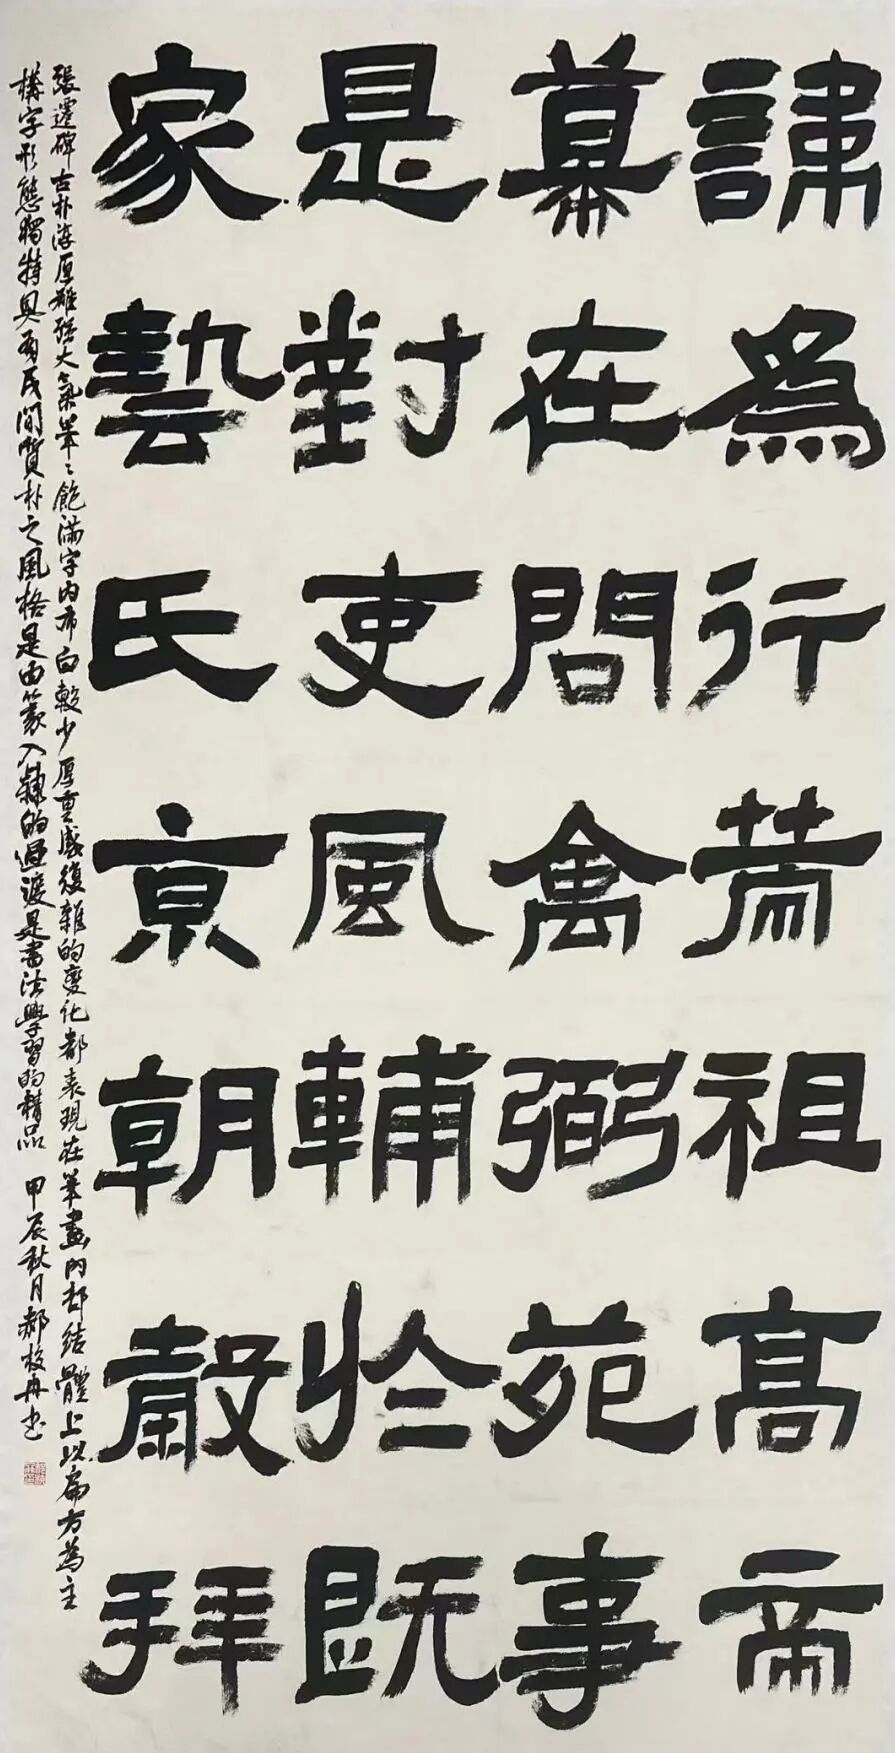 諱為行帶祖高帝
幕在問禽弼苑事
是對吏風輔於既
家藝氏京朝拜
張遷碑古朴淳厚雄强大氣筆〻飽滿字内布白較少厚重感復雜的變化都表現在筆畫内部結體上以扁方為主
構字形態獨特具有民间質朴之風格是由篆入隸的過渡是書法學習的精品 甲辰秋月郝书